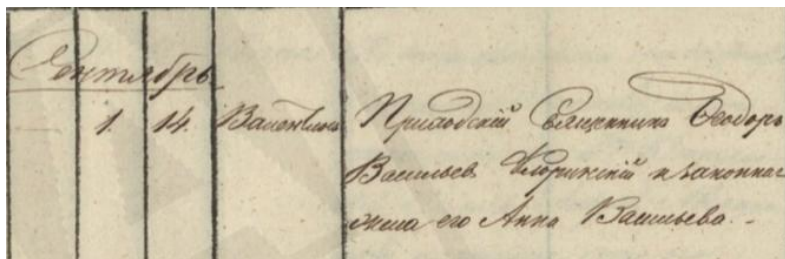 Сентябрь
1. 14. Валентина Приходскій Священникъ Ѳеодоръ
Васильевъ и законная
жена его Анна Васильева. -